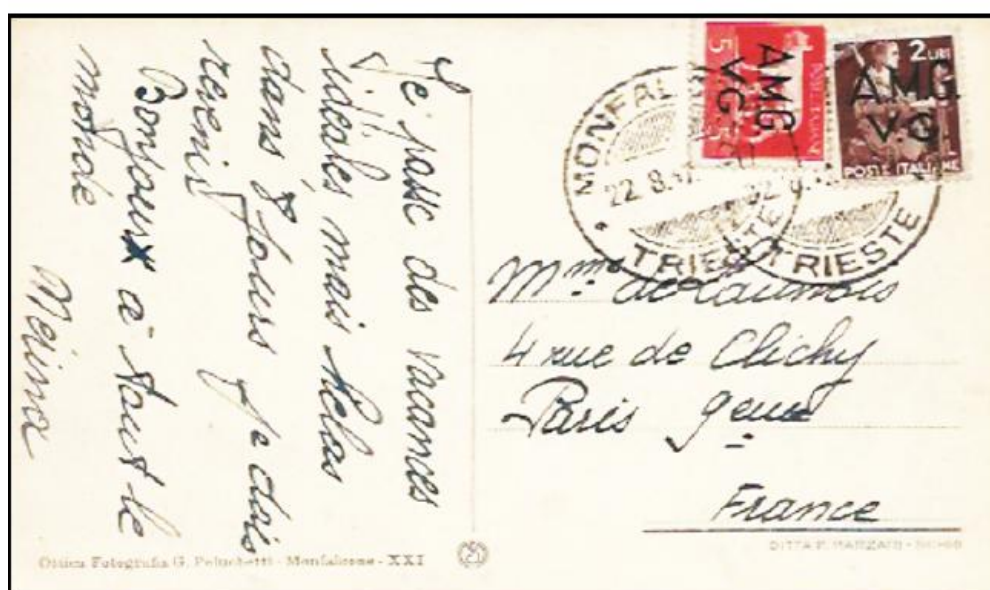 Je passe des vacances
idéales mais hélas
dans 8 jours je dois
revenir
Bonjoux à tout le
monde
Neina
5
AMG
VG
2 LIRE
AMG
VG
POSTE ITALIANE
MONFAL
22.8.
TRIESTE
TRIESTE
Mme
4 rue de Clichy
Paris 9eme
France
Ottica Fotografia G. Peluchetti - Monfalcone - XXI
DITTA